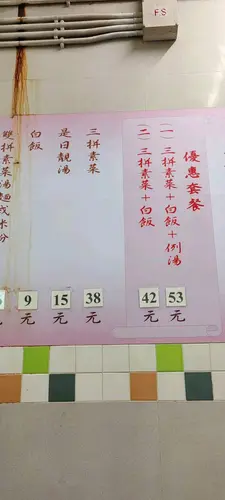 F.S
優惠套餐
(一) 三拼素菜+白飯+例湯
53元
(二) 三拼素菜+白飯
42元
三拼素菜
38元
是日靚湯
15元
白飯
9元
雙拼素菜湯麵或米粉
元